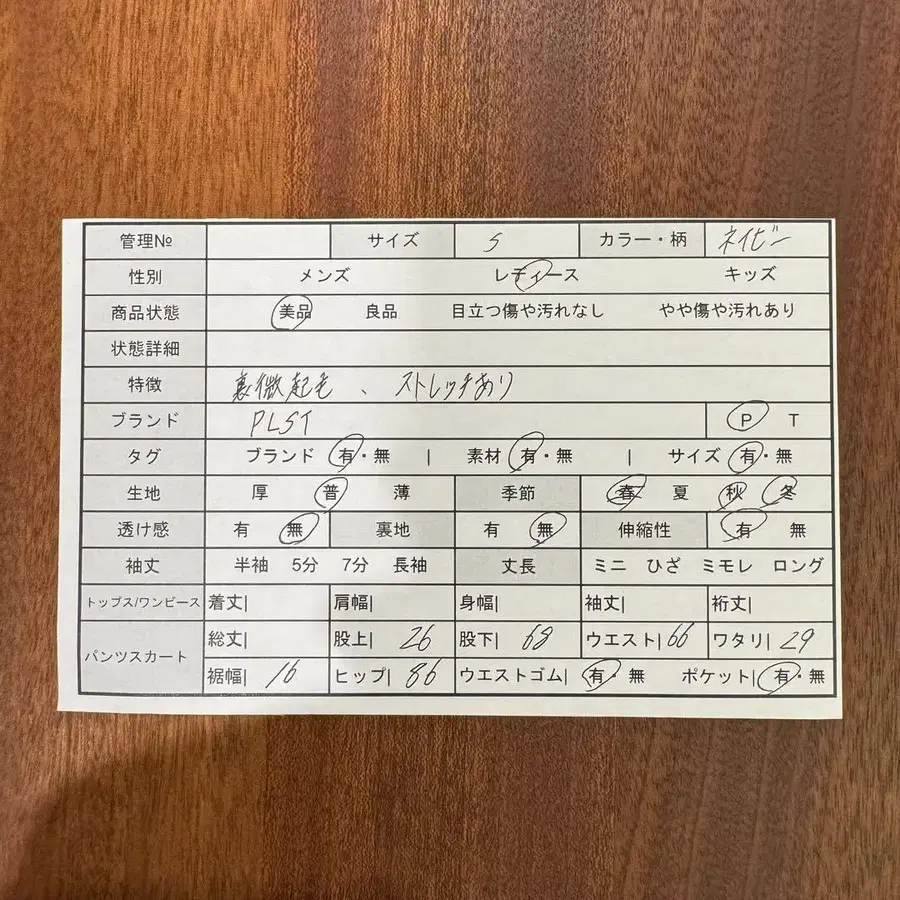 管理№ サイズ S カラー・柄 ネイビー
性別 メンズ レディース キッズ
商品状態 美品 良品 目立つ傷や汚れなし やや傷や汚れあり
状態詳細
特徴 裏微起毛、ストレッチあり
ブランド PLST P T
タグ ブランド 有・無 | 素材 有・無 | サイズ 有・無
生地 厚 普 薄 季節 春 夏 秋 冬
透け感 有 無 裏地 有 無 伸縮性 有 無
袖丈 半袖 5分 7分 長袖 丈長 ミニ ひざ ミモレ ロング
トップス/ワンピース 着丈| 肩幅| 身幅| 袖丈| 裄丈|
パンツスカート 総丈| 股上| 26 股下| 68 ウエスト| 66 ワタリ| 29
裾幅| 16 ヒップ| 86 ウエストゴム| 有・無 ポケット| 有・無